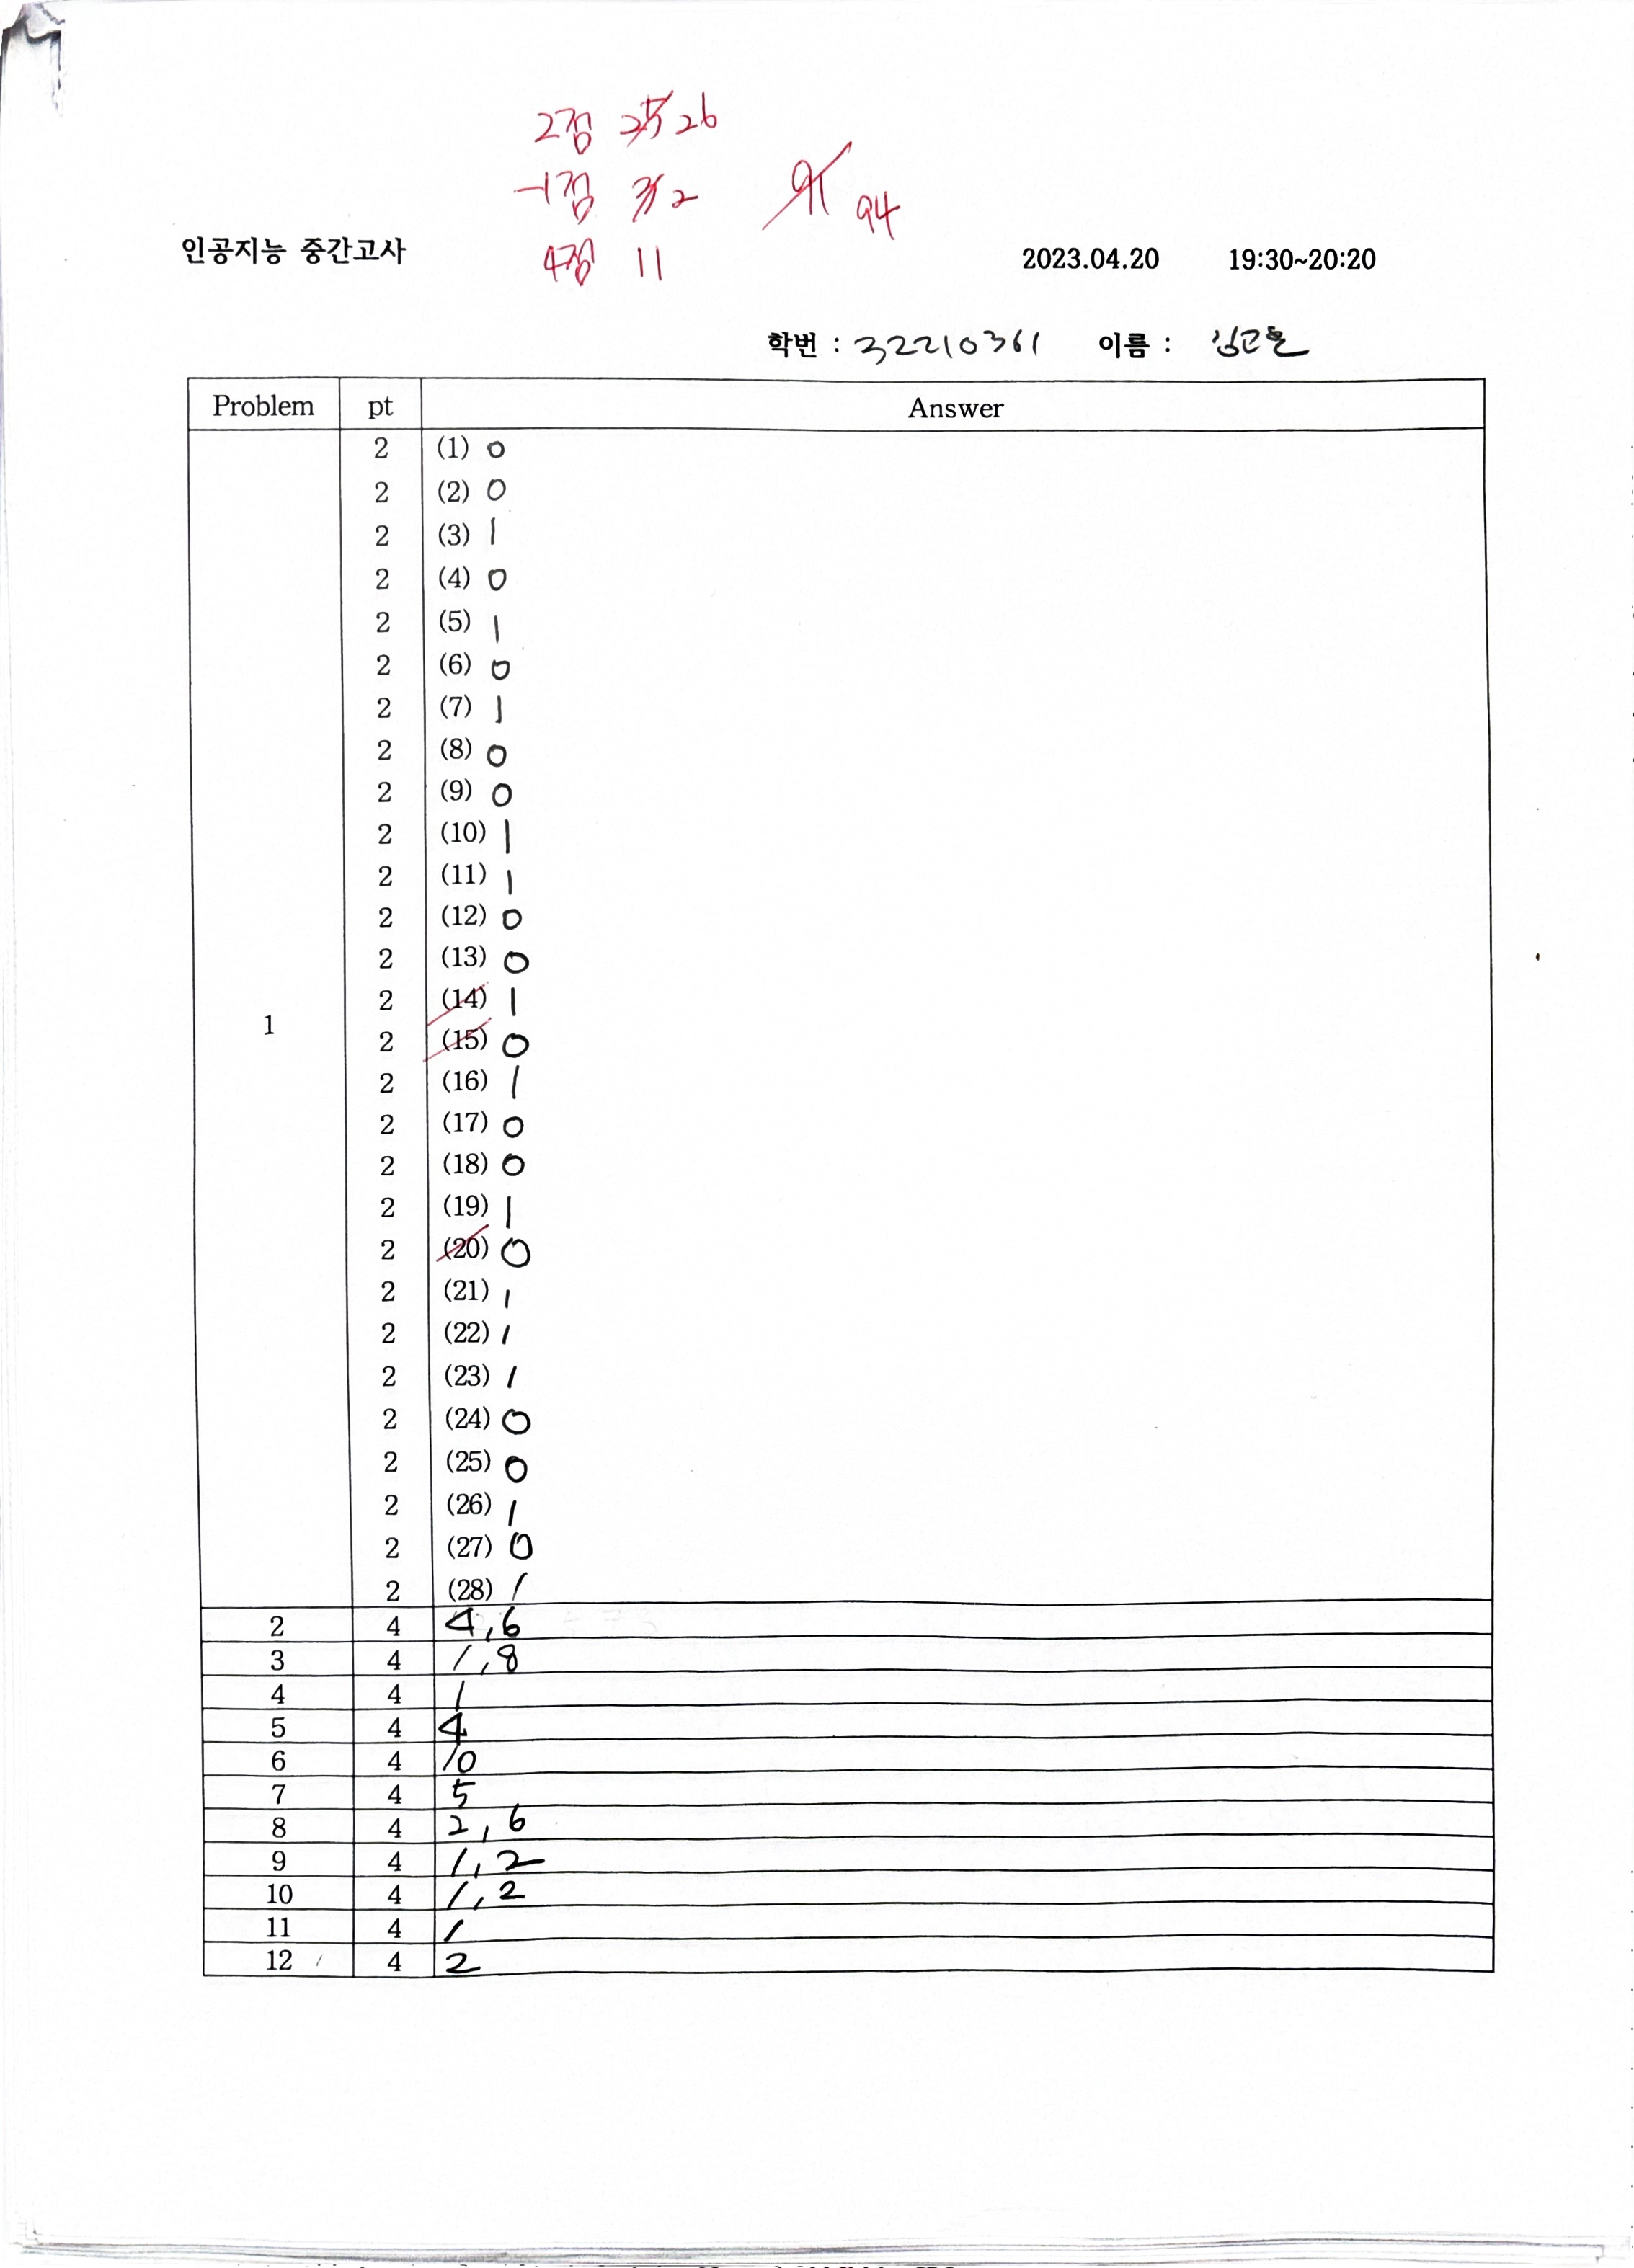 2점 25 26
-1점 3 2 91 94
4점 11
인공지능 중간고사 2023.04.20 19:30~20:20
학번 : 32210361 이름 :
Problem pt Answer
1
2 (1) 0
2 (2) 0
2 (3) 1
2 (4) 0
2 (5) 1
2 (6) 0
2 (7) 1
2 (8) 0
2 (9) 0
2 (10) 1
2 (11) 1
2 (12) 0
2 (13) 0
2 (14) 1
2 (15) 0
2 (16) 1
2 (17) 0
2 (18) 0
2 (19) 1
2 (20) 0
2 (21) 1
2 (22) 1
2 (23) 1
2 (24) 0
2 (25) 0
2 (26) 1
2 (27) 0
2 (28) 1
2 4 4,6
3 4 1,8
4 4 1
5 4 4
6 4 10
7 4 5
8 4 2,6
9 4 1,2
10 4 1,2
11 4 1
12 4 2